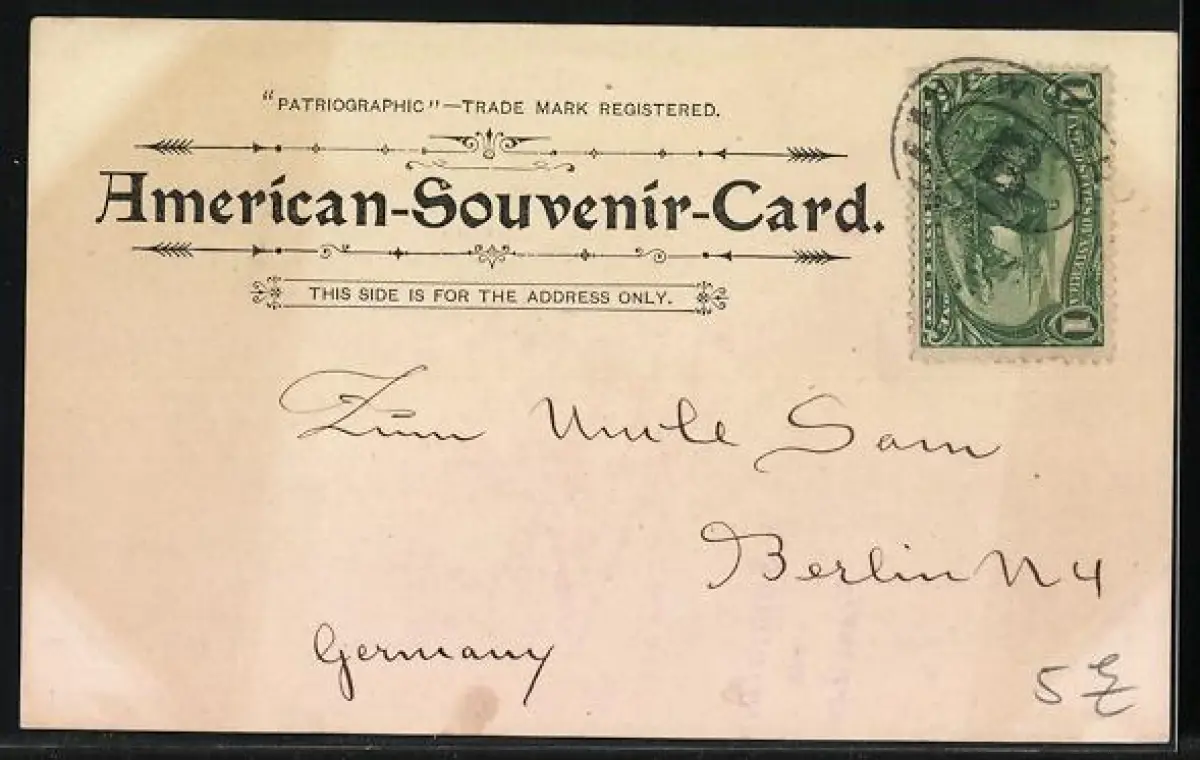 "PATRIOGRAPHIC"—TRADE MARK REGISTERED.
American-Souvenir-Card.
THIS SIDE IS FOR THE ADDRESS ONLY.
1
1
Zum Uncle Sam
Berlin N 4
Germany
5